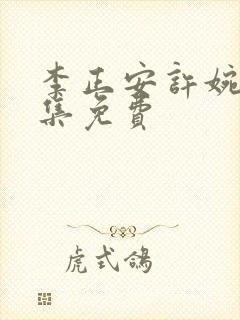 李正安許婉
集免費
虎式鴿